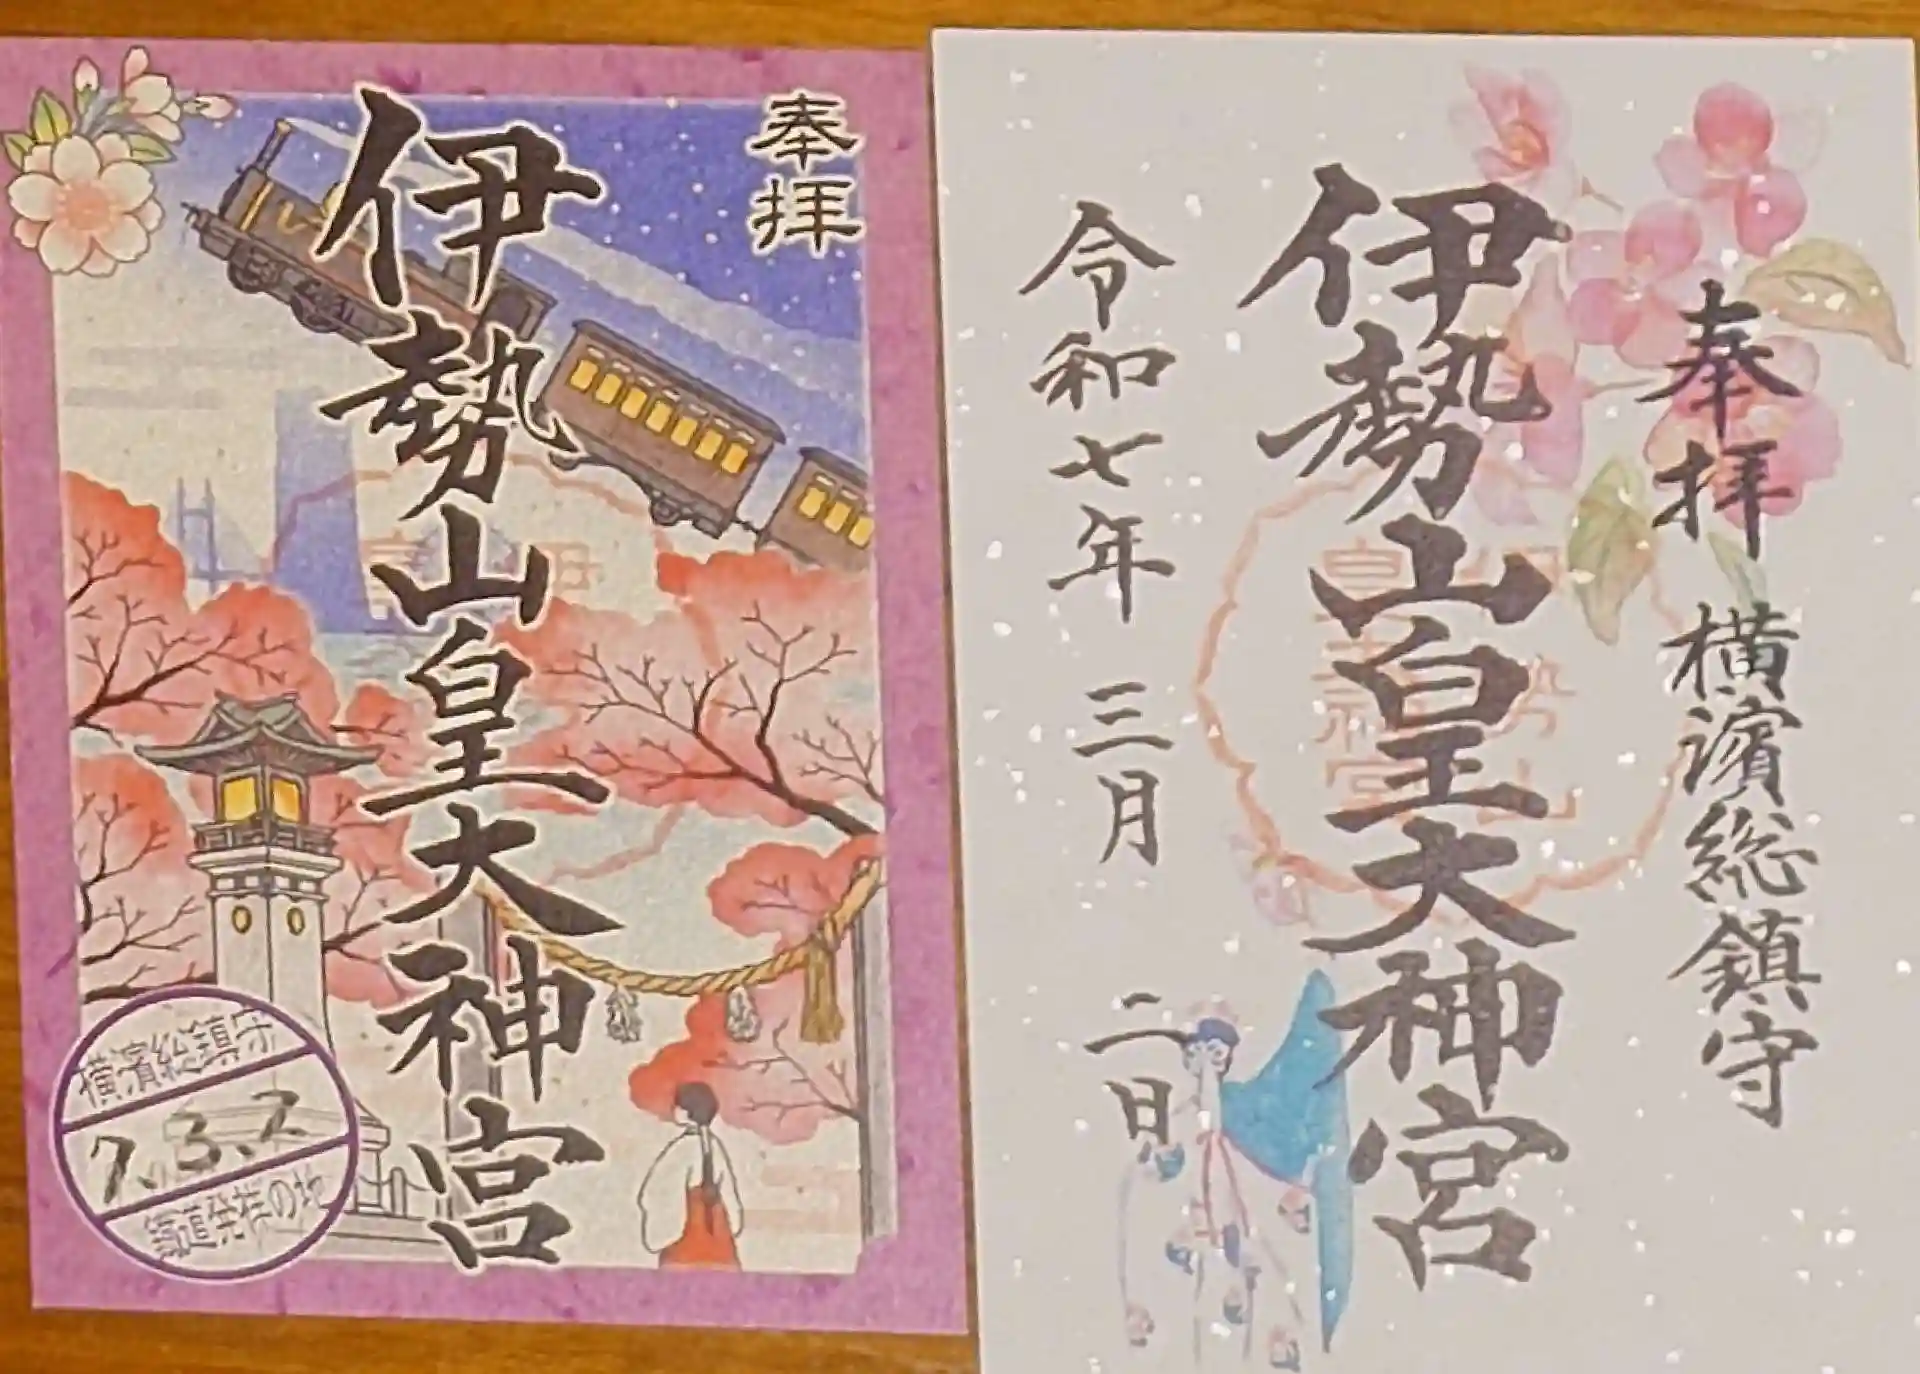 奉拝
伊勢山皇大神宮
横濱総鎮守
7.3.2
鐵道発祥の地
奉拝 横濱総鎮守
伊勢山皇大神宮
令和七年 三月 二日